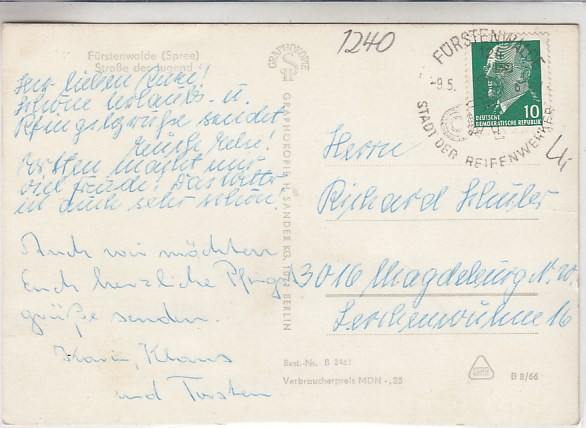 1240
Fürstenwalde (Spree)
Straße der Jugend
Ihr lieben
Schöne Urlaubs- u.
Pfingstgrüße sendet
Torsten macht mir
viel Freude! Das Wetter
ist auch sehr schön!
Auch wir möchten
Euch herzliche Pfingst-
grüße senden.
Karin, Klaus
und Torsten
GRAPHOKOPIE
GRAPHOKOPIE H. SANDER KG, 1071 BERLIN
FÜRSTENWALDE
-9.5.
STADT DER REIFENWERKER
10
DEUTSCHE
DEMOKRATISCHE REPUBLIK
Herrn
Richard Schuler
3016 Magdeburg N. W.
Lerchenwuhne 16
Best.-Nr. B 2461
Verbraucherpreis MDN -,25
B 8/66